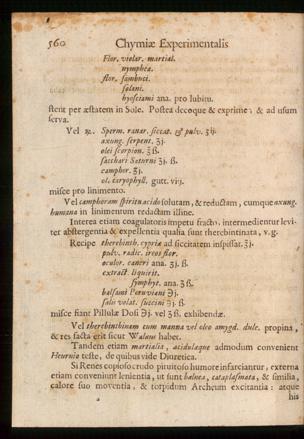 560 Chymiæ Experimentalis
Flor. violar. martial.
nymphea.
flor. sambuci.
solani.
hyosciami ana. pro lubitu.
stent per æstatem in Sole. Postea decoque & exprime; & ad usum
serva.
Vel ℞. Sperm. ranar. siccat. & pulv. ʒij.
axung. serpent. ʒj.
olei scorpion. ʒß.
sacchari Saturni ʒj. ß.
camphor. ʒj.
ol. caryophyll. gutt. vij.
misce pro linimento.
Vel camphoram spiritu acido solutam, & reductam, cumque axung.
humana in linimentum reductam illine.
Interea etiam coagulatoris impetu fracto, intermedientur levi-
ter abstergentia & expellentia qualia sunt therebintinata, v.g.
Recipe therebinth. cypriæ ad siccitatem inspissat. ʒj.
pulv. radic. ireos flor.
oculor. cancri ana. ʒj. ß.
extract. liquirit.
symphyt. ana. ʒß.
balsami Peruviani ℈j.
salis volat. succini ℈j. ß.
misce fiant Pillulæ Dosi ℈j. vel ʒß. exhibendæ.
Vel therebinthinam cum manna vel oleo amygd. dulc. propina,
& res facta erit sicut Walæus habet.
Tandem etiam martialia, acidulæque admodum convenient
Heurnio teste, de quibus vide Diuretica.
Si Renes copioso crudo pituitoso humore infarciantur, externa
etiam conveniunt lenientia, ut sunt balnea, cataplasmata, & similia,
calore suo moventia, & torpidum Archeum excitantia: atque
his